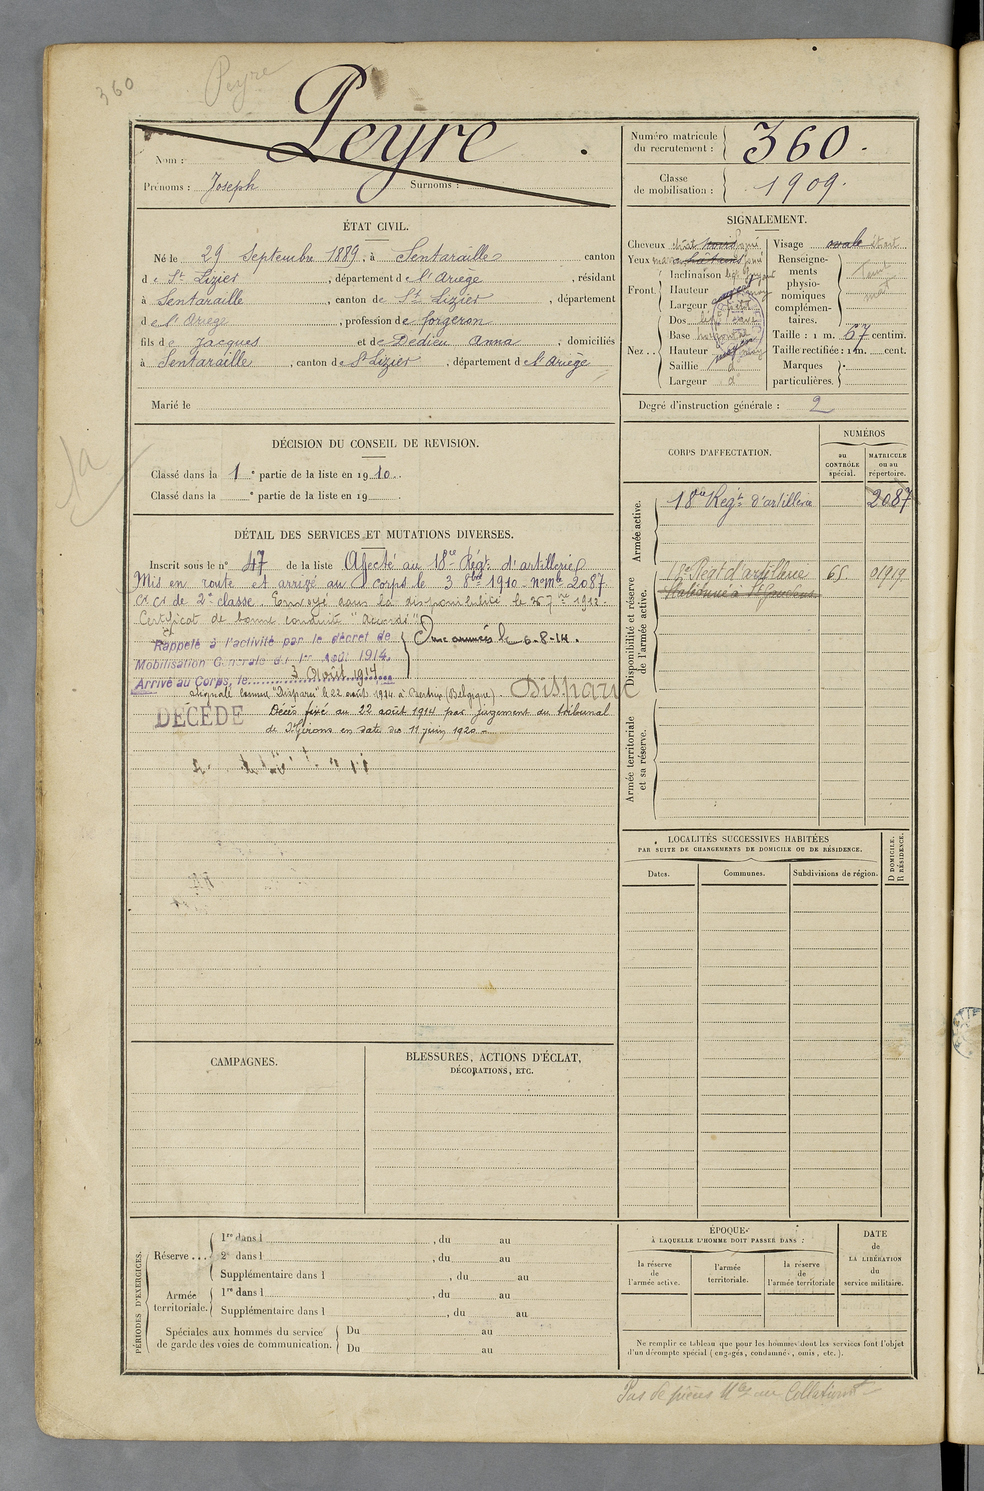 360
Peyre
Peyre
Nom :
Prénoms : Joseph Surnoms :
Numéro matricule
du recrutement : 360.
Classe
de mobilisation : 1909.
ÉTAT CIVIL.
Né le 29 Septembre 1889, à Sentaraille canton
de St Lizier, département de l'Ariège, résidant
à Sentaraille, canton de St Lizier, département
de l'Ariège, profession de forgeron
fils de Jacques et de Dedieu Anna, domiciliés
à Sentaraille, canton de St Lizier, département de l'Ariège
Marié le
SIGNALEMENT.
Cheveux
Yeux
Front.
Inclinaison
Hauteur
Largeur
Nez..
Dos
Base
Hauteur
Saillie d°
Largeur d°
Visage ovale
Renseigne-
ments
physio-
nomiques
complémen-
taires.
Teint
mat
Taille : 1 m. 67 centim.
Taille rectifiée : 1 m. cent.
Marques
particulières.
Degré d'instruction générale : 2
DÉCISION DU CONSEIL DE REVISION.
Classé dans la 1e partie de la liste en 1910.
Classé dans la e partie de la liste en 19
DÉTAIL DES SERVICES ET MUTATIONS DIVERSES.
Inscrit sous le n° 47 de la liste Affecté au 18e Régt d'artillerie
Mis en route et arrivé au corps le 3 8bre 1910 nomle 2087
de 2e classe. Envoyé dans la disponibilité le 7bre
Certificat de bonne conduite "Accordé"
Rappelé à l'activité par le décret de
Mobilisation Générale du 1er Août 1914.
Arrivé au Corps, le 3 Août 1914
aux armées le 6-8-14.
Signalé comme "Disparu" le 22 août 1914 à (Belgique).
Disparu
DÉCÉDÉ
Décès fixé au 22 août 1914 par jugement du tribunal
de St Girons en date du 11 juin 1920
CORPS D'AFFECTATION.
NUMÉROS
au
CONTRÔLE
spécial.
MATRICULE
ou au
répertoire.
Armée active.
18e Regt d'artillerie 2087
Disponibilité et réserve
de l'armée active.
18e Regt d'artillerie 65. 01919
Stationné à St Gaudens.
Armée territoriale
et sa réserve.
LOCALITÉS SUCCESSIVES HABITÉES
PAR SUITE DE CHANGEMENTS DE DOMICILE OU DE RÉSIDENCE.
Dates.
Communes.
Subdivisions de région.
D DOMICILE.
R RÉSIDENCE.
CAMPAGNES.
BLESSURES, ACTIONS D'ÉCLAT,
DÉCORATIONS, ETC.
PÉRIODES D'EXERCICES.
Réserve ...
1re dans l , du au
2e dans l , du au
Supplémentaire dans l , du au
Armée
territoriale.
1re dans l , du au
Supplémentaire dans l , du au
Spéciales aux hommes du service
de garde des voies de communication.
Du au
Du au
ÉPOQUE
À LAQUELLE L'HOMME DOIT PASSER DANS :
la réserve
de
l'armée active.
l'armée
territoriale.
la réserve
de
l'armée territoriale
DATE
de
LA LIBÉRATION
du
service militaire.
Ne remplir ce tableau que pour les hommes dont les services font l'objet
d'un décompte spécial (engagés, condamnés, omis, etc.).
Pas de pièces